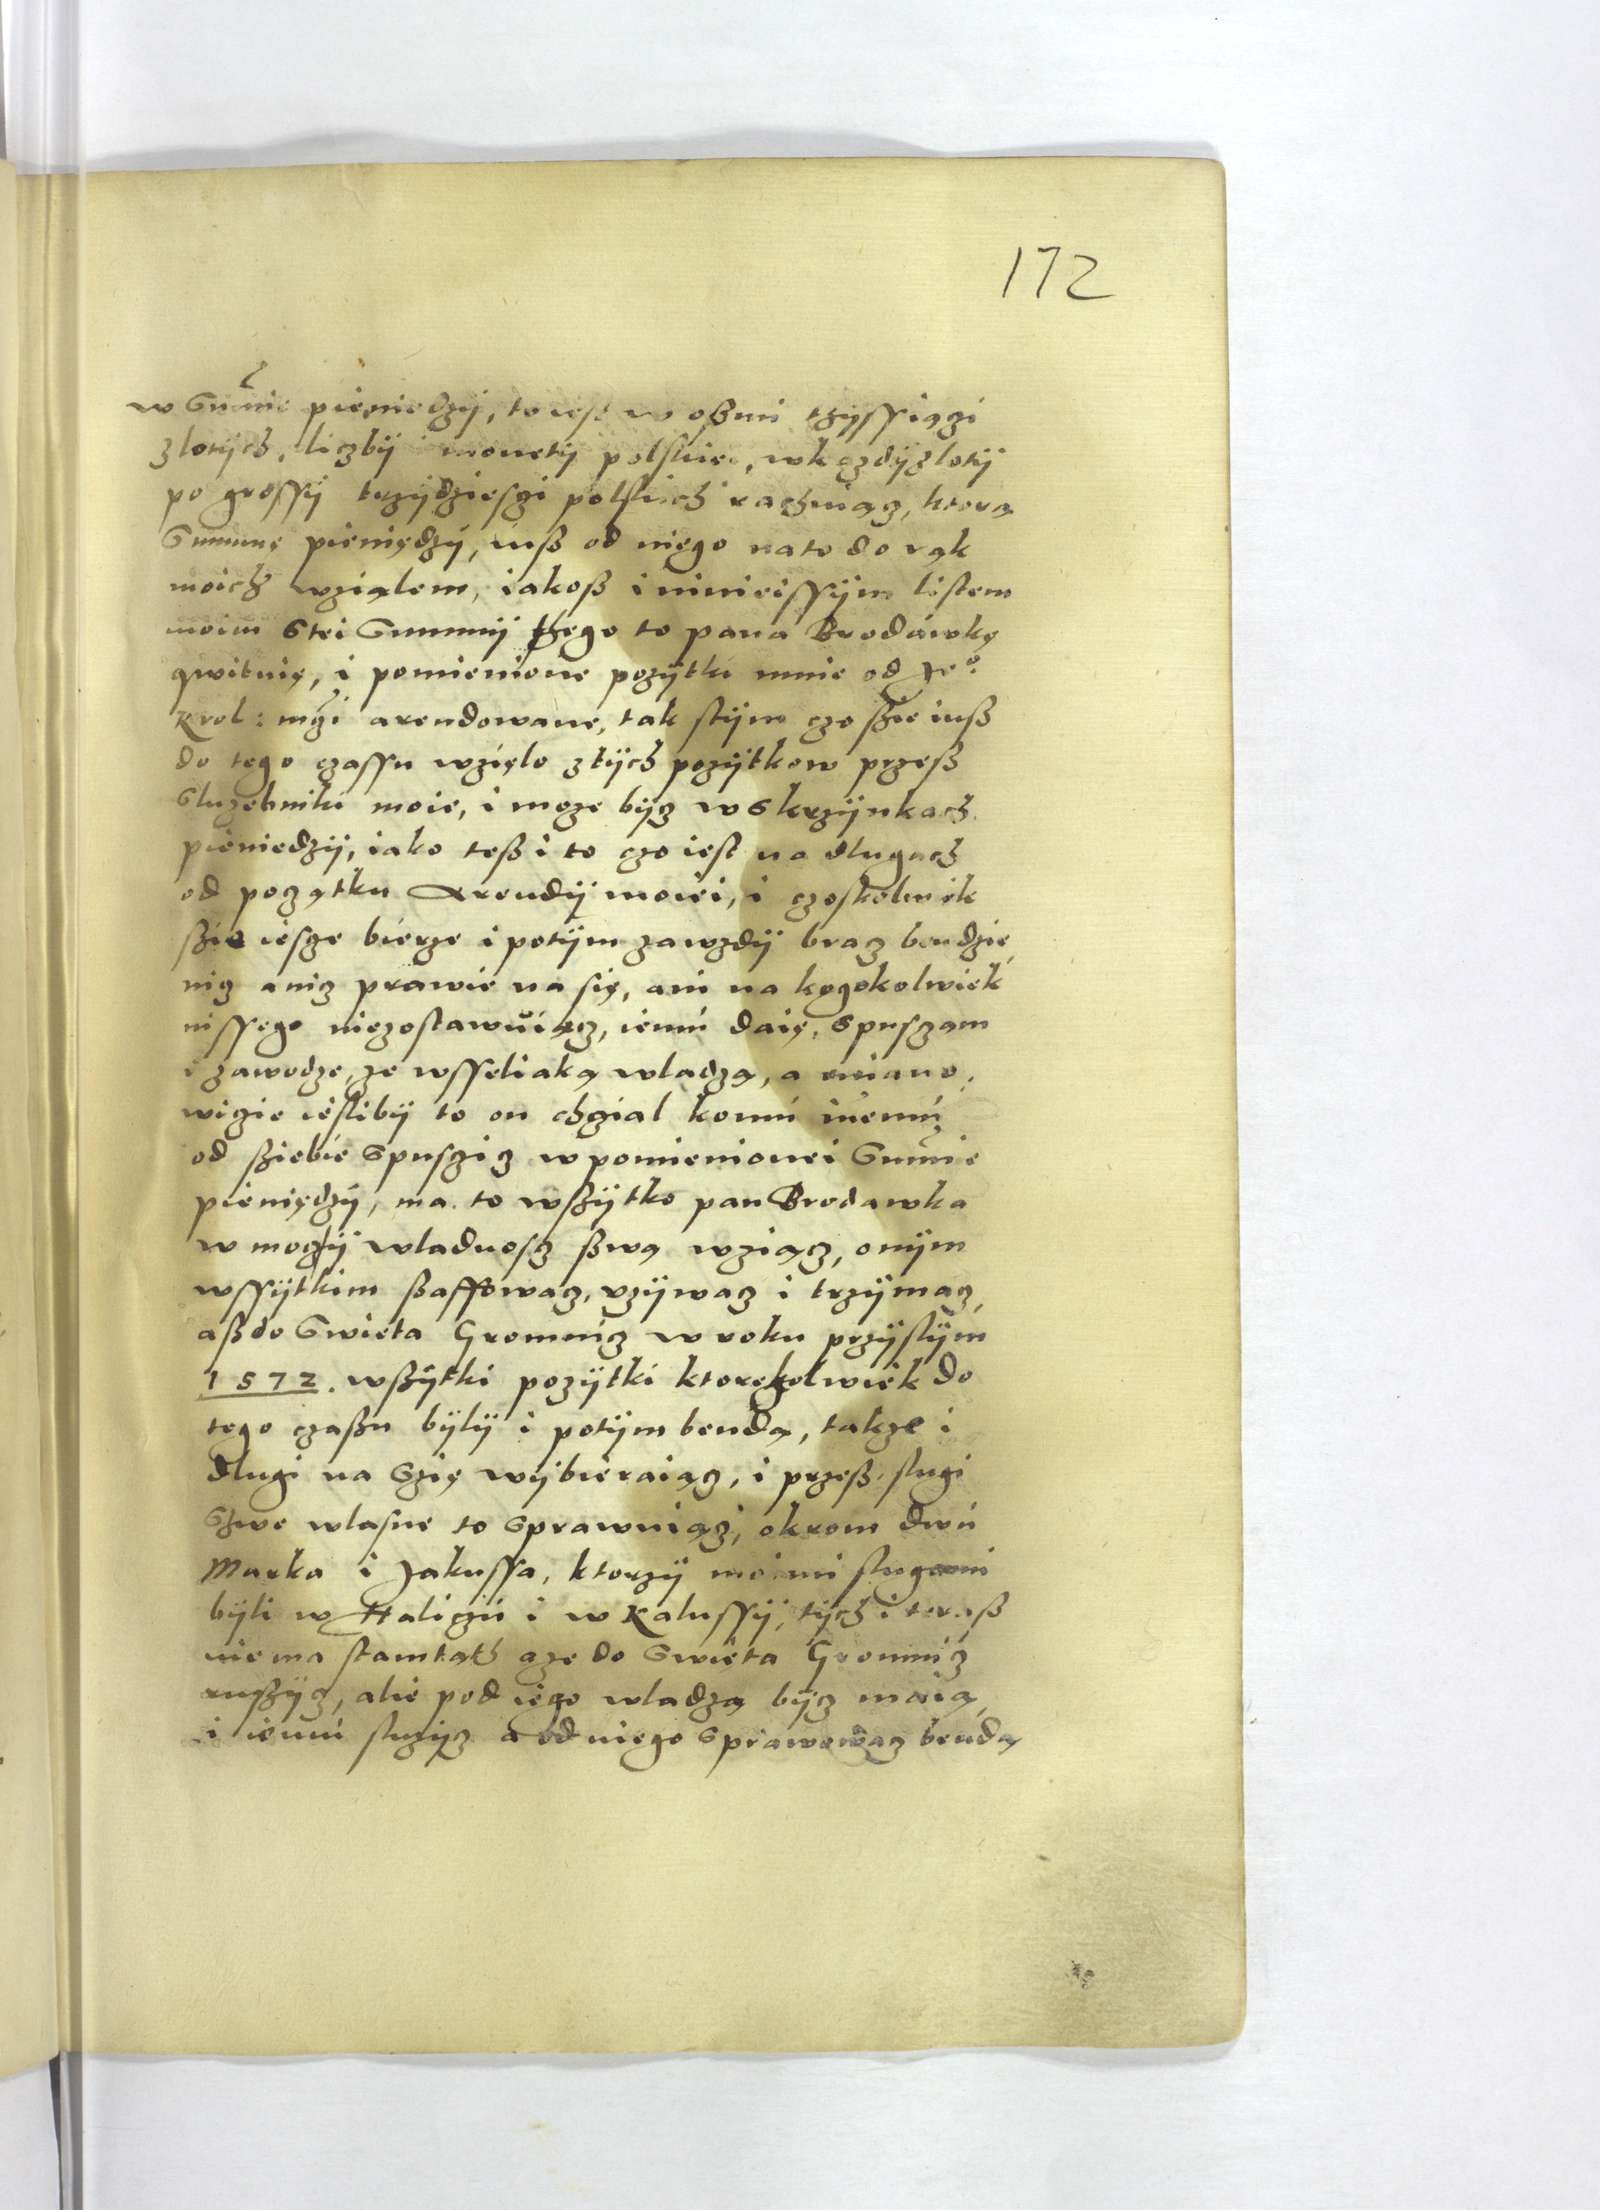 172
w Summie pieniedzÿ, to iest w oßmi tzÿssiączi
zlotÿch, liczbÿ i monetÿ polskiei, wkazdÿ zlotÿ
po grossÿ trzÿdziesczi polskich rachuiącz, ktorą
Summę pieniędzÿ, iuß od niego nato do rąk
moich wziąlem, iakoß i ninieissÿm listem
moim s tei Summÿ tego to pana Brodawkę
qwituię, i pomienione pozÿtki mnie od Je°
Krol: mczi arendowane, tak stÿm czo ßie iuß
do tego czassu wzięlo z tÿch pozÿtkow przeß
sluzebniki moie, i moze bÿcz w skrzÿnkach
pieniedzÿ, iako teß i to czo iest na dlugach
od początku Arendÿ moiei, i czoskolwiek
ßie iescze bierze i potÿm zawzdÿ bracz bendzie
nicz a nicz prawie na się, ani na kogokolwiek
inssego niezostawuiącz, iemu daię, spusczam
i zawodze, ze wsseliaką wladzą, a miano,
wiczie iesliby to on chcial komu inemu
od ßiebie spusczicz w pomienionei Summie
pieniędzÿ, ma to wßÿtko pan Brodawka
w mocz ÿ wladnoscz ßwą wziącz, onÿm
wssÿtkim ßaffowacz, vzÿwacz i trzÿmacz,
aß do Swieta Gromnicz w roku przÿslÿm
1572. wßÿtki pozÿtki ktorekolwiek do
tego czaßu bÿlÿ i potÿm bendą, takze i
dlugi na Szię wÿbieraiącz, i przeß slugi
Szwe wlasne to sprawuiącz, okrom dwu
Marka i Jakussa, ktorzÿ moimi slugami
bÿli w Haliczu i w Kalussÿ, tÿch i teraß
nie ma stamtąd aze do Swieta Gromnicz
rußÿcz, alie pod iego wladzą bÿcz maią,
i iemu sluzÿcz a od niego sprawowacz bendą